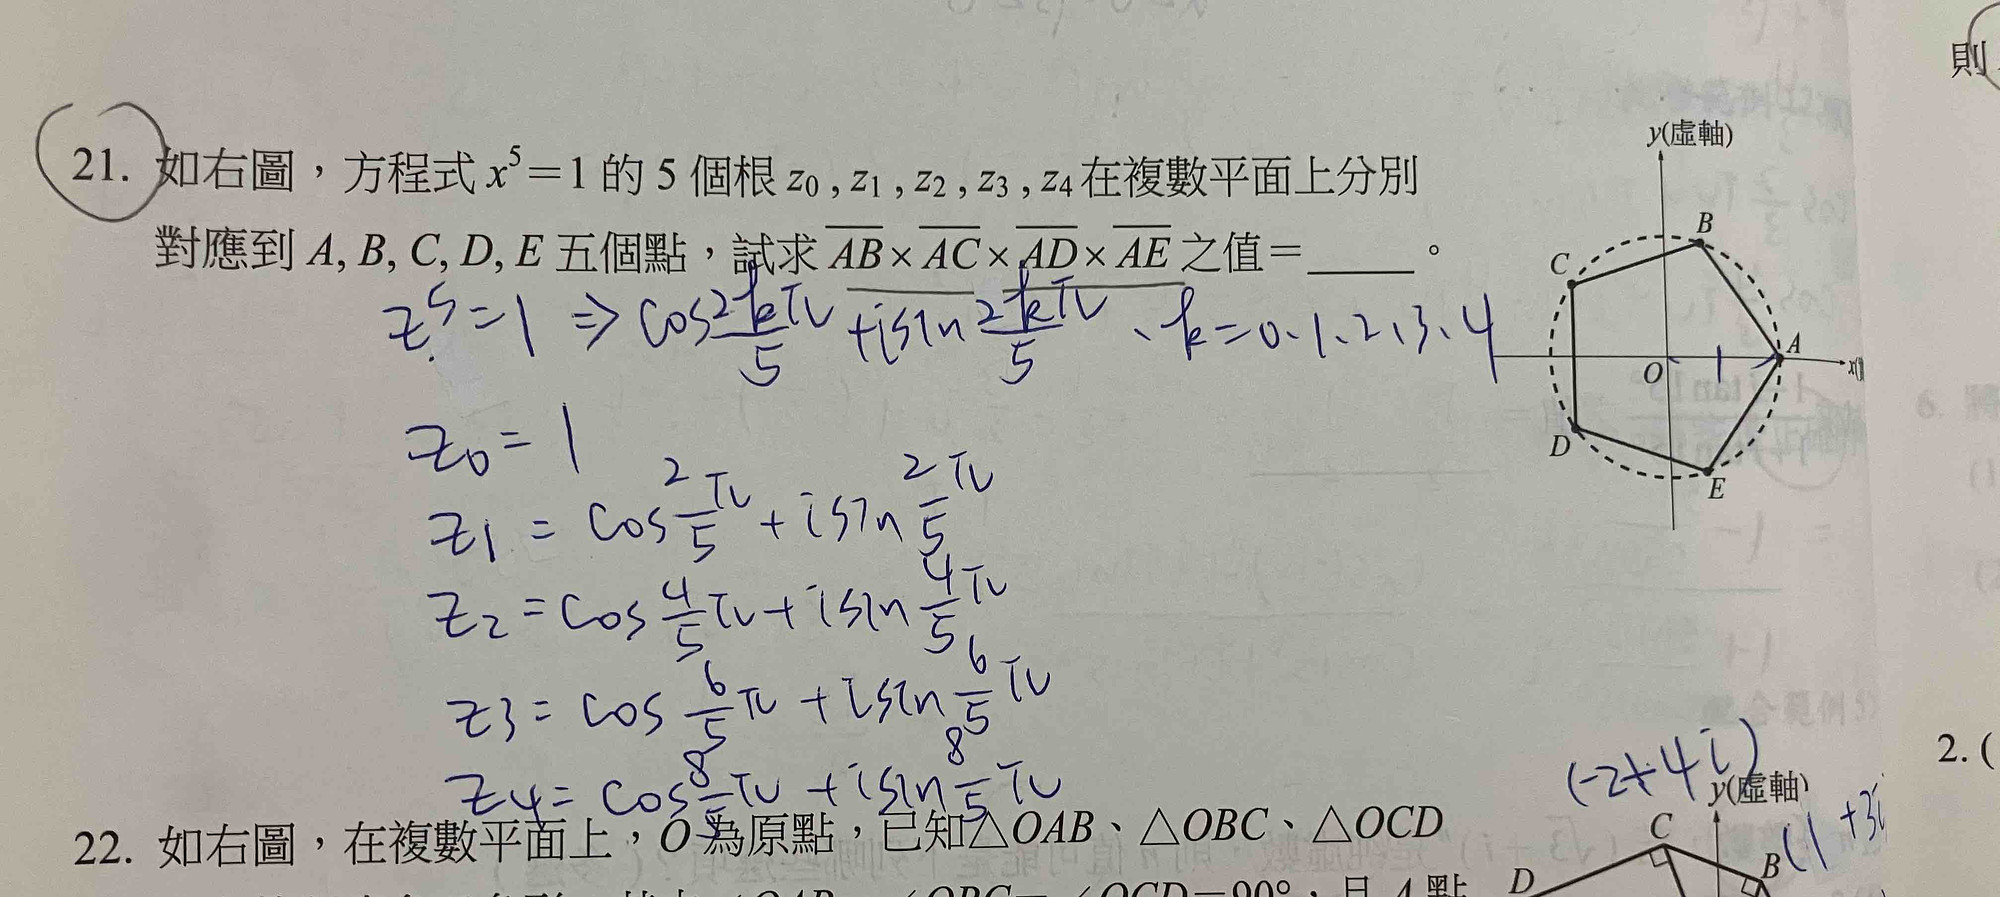 則
21. 如右圖，方程式 x⁵=1 的 5 個根 z₀ , z₁ , z₂ , z₃ , z₄ 在複數平面上分別
對應到 A, B, C, D, E 五個點，試求 AB × AC × AD × AE 之值=_____。
z⁵=1 ⇒ cos 2kπ/5 + isin 2kπ/5 、k=0、1、2、3、4
z₀ = 1
z₁ = cos 2/5 π + isin 2/5 π
z₂ = cos 4/5 π + isin 4/5 π
z₃ = cos 6/5 π + isin 6/5 π
z₄ = cos 8/5 π + isin 8/5 π
y(虛軸)
B
C
A
O
1
D
E
22. 如右圖，在複數平面上，O 為原點，已知△OAB、△OBC、△OCD
(-2+4i)
y(虛軸)
C
B
(1+3i
D
2. (